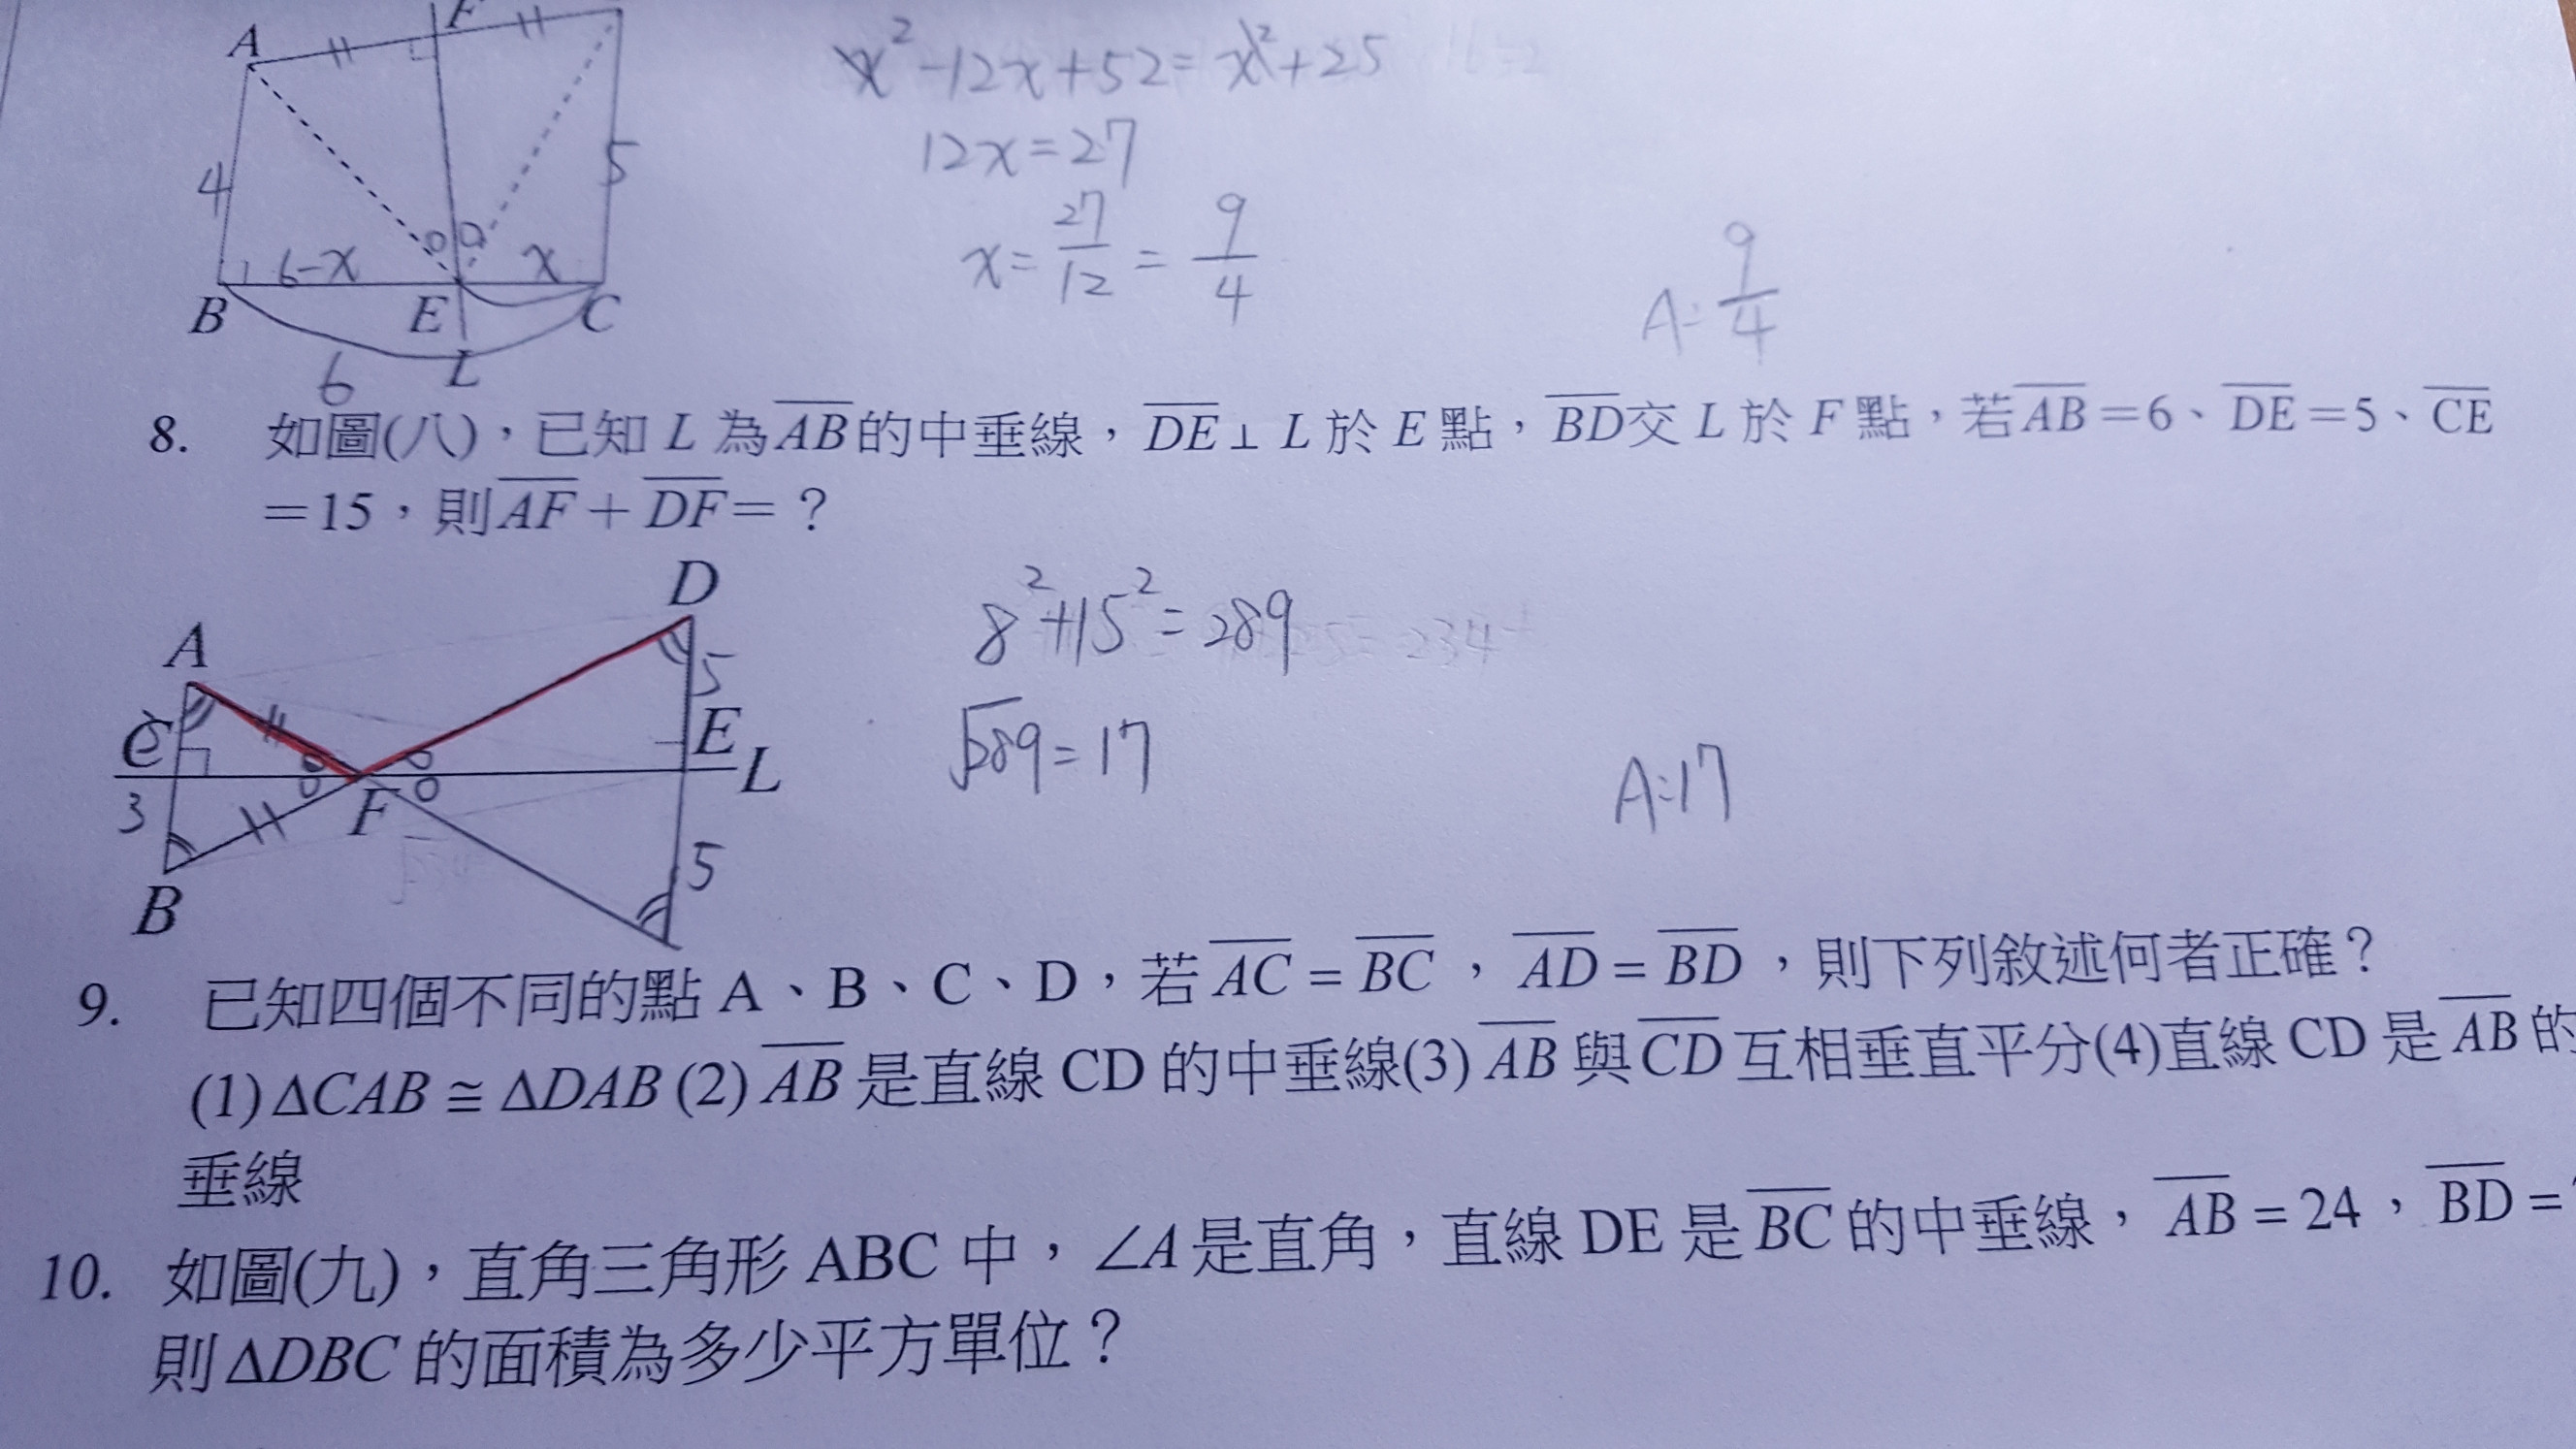 F
A
x²-12x+52=x²+25
12x=27
4
5
x=27/12=9/4
6-x
x
A:9/4
B
E
C
L
6
8. 如圖(八)，已知 L 為AB的中垂線，DE⊥ L 於 E 點，BD交 L 於 F 點，若AB＝6、DE＝5、CE
＝15，則AF＋DF＝？
D
8²+15²=289
A
5
C
E
L
√289=17
A:17
3
F
5
B
9. 已知四個不同的點 A、B、C、D，若 AC = BC ， AD = BD ，則下列敘述何者正確？
(1) ΔCAB ≅ ΔDAB (2) AB 是直線 CD 的中垂線(3) AB 與 CD 互相垂直平分(4)直線 CD 是 AB 的
垂線
10. 如圖(九)，直角三角形 ABC 中，∠A 是直角，直線 DE 是 BC 的中垂線， AB = 24 ， BD =
則 ΔDBC 的面積為多少平方單位？